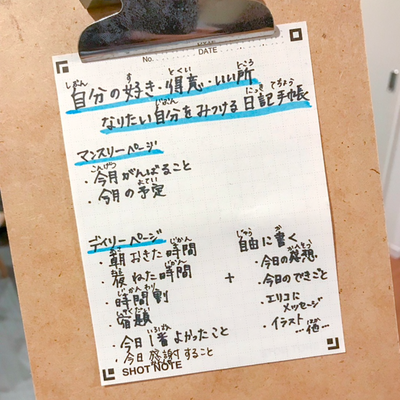 No.
DATE
自分の好き・得意・いい所
なりたい自分をみつける日記手帳
マンスリーページ
・今月がんばること
・今月の予定
デイリーページ
・朝おきた時間
・夜ねた時間
・時間割
・宿題
・今日1番よかったこと
・今日感謝すること
+
自由に書く
・今日の感想
・今日のできごと
・エリコに
メッセージ
・イラスト
…他…
SHOT NOTE